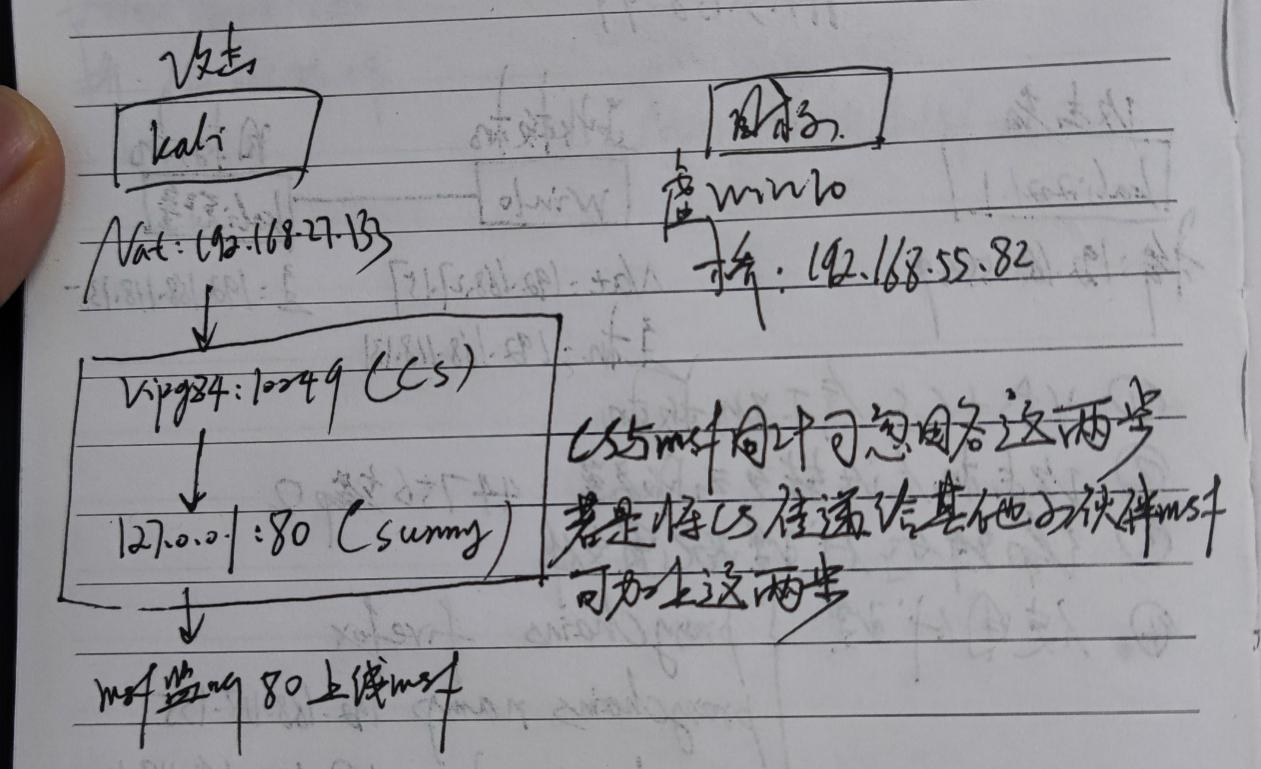 攻击
kali
Nat: 192.168.27.133
vipgz4:10249 (CS)
127.0.0.1:80 (sunny)
msf监听 80上线msf
win10
桥: 192.168.55.82
CS与msf同时可忽略这两步
若是将CS传递给其他小伙伴msf
可加上这两步